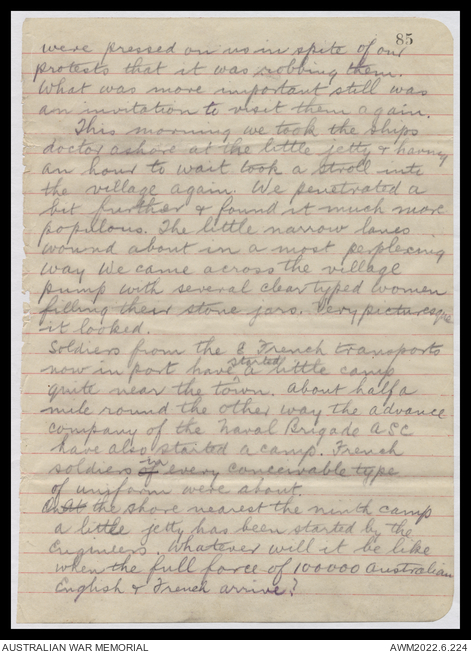 85
were pressed on us in spite of our
protests that it was robbing them.
What was more important still was
an invitation to visit them again.
This morning we took the ships
doctor ashore at the little jetty & having
an hour to wait took a stroll into
the village again. We penetrated a
bit further & found it much more
popillous. The little narrow lanes
wound about in a most perplexing
way We came across the village
pump with several clear typed women
filling their stone jars. Very picturesque
it looked.
Soldiers from the 8 French transports
now in port have started a little camp
quite near the town. About half a
mile round the other way the advance
company of the Naval Brigade ASC
have also started a camp. French
soldiers in every conceivable type
of uniform were about.
On the shore nearest the ninth camp
a little jetty has been started by the
Engineers. Whatever will it be like
when the full force of 100000 Australian
English & French arrive?
AUSTRALIAN WAR MEMORIAL
AWM2022.6.224